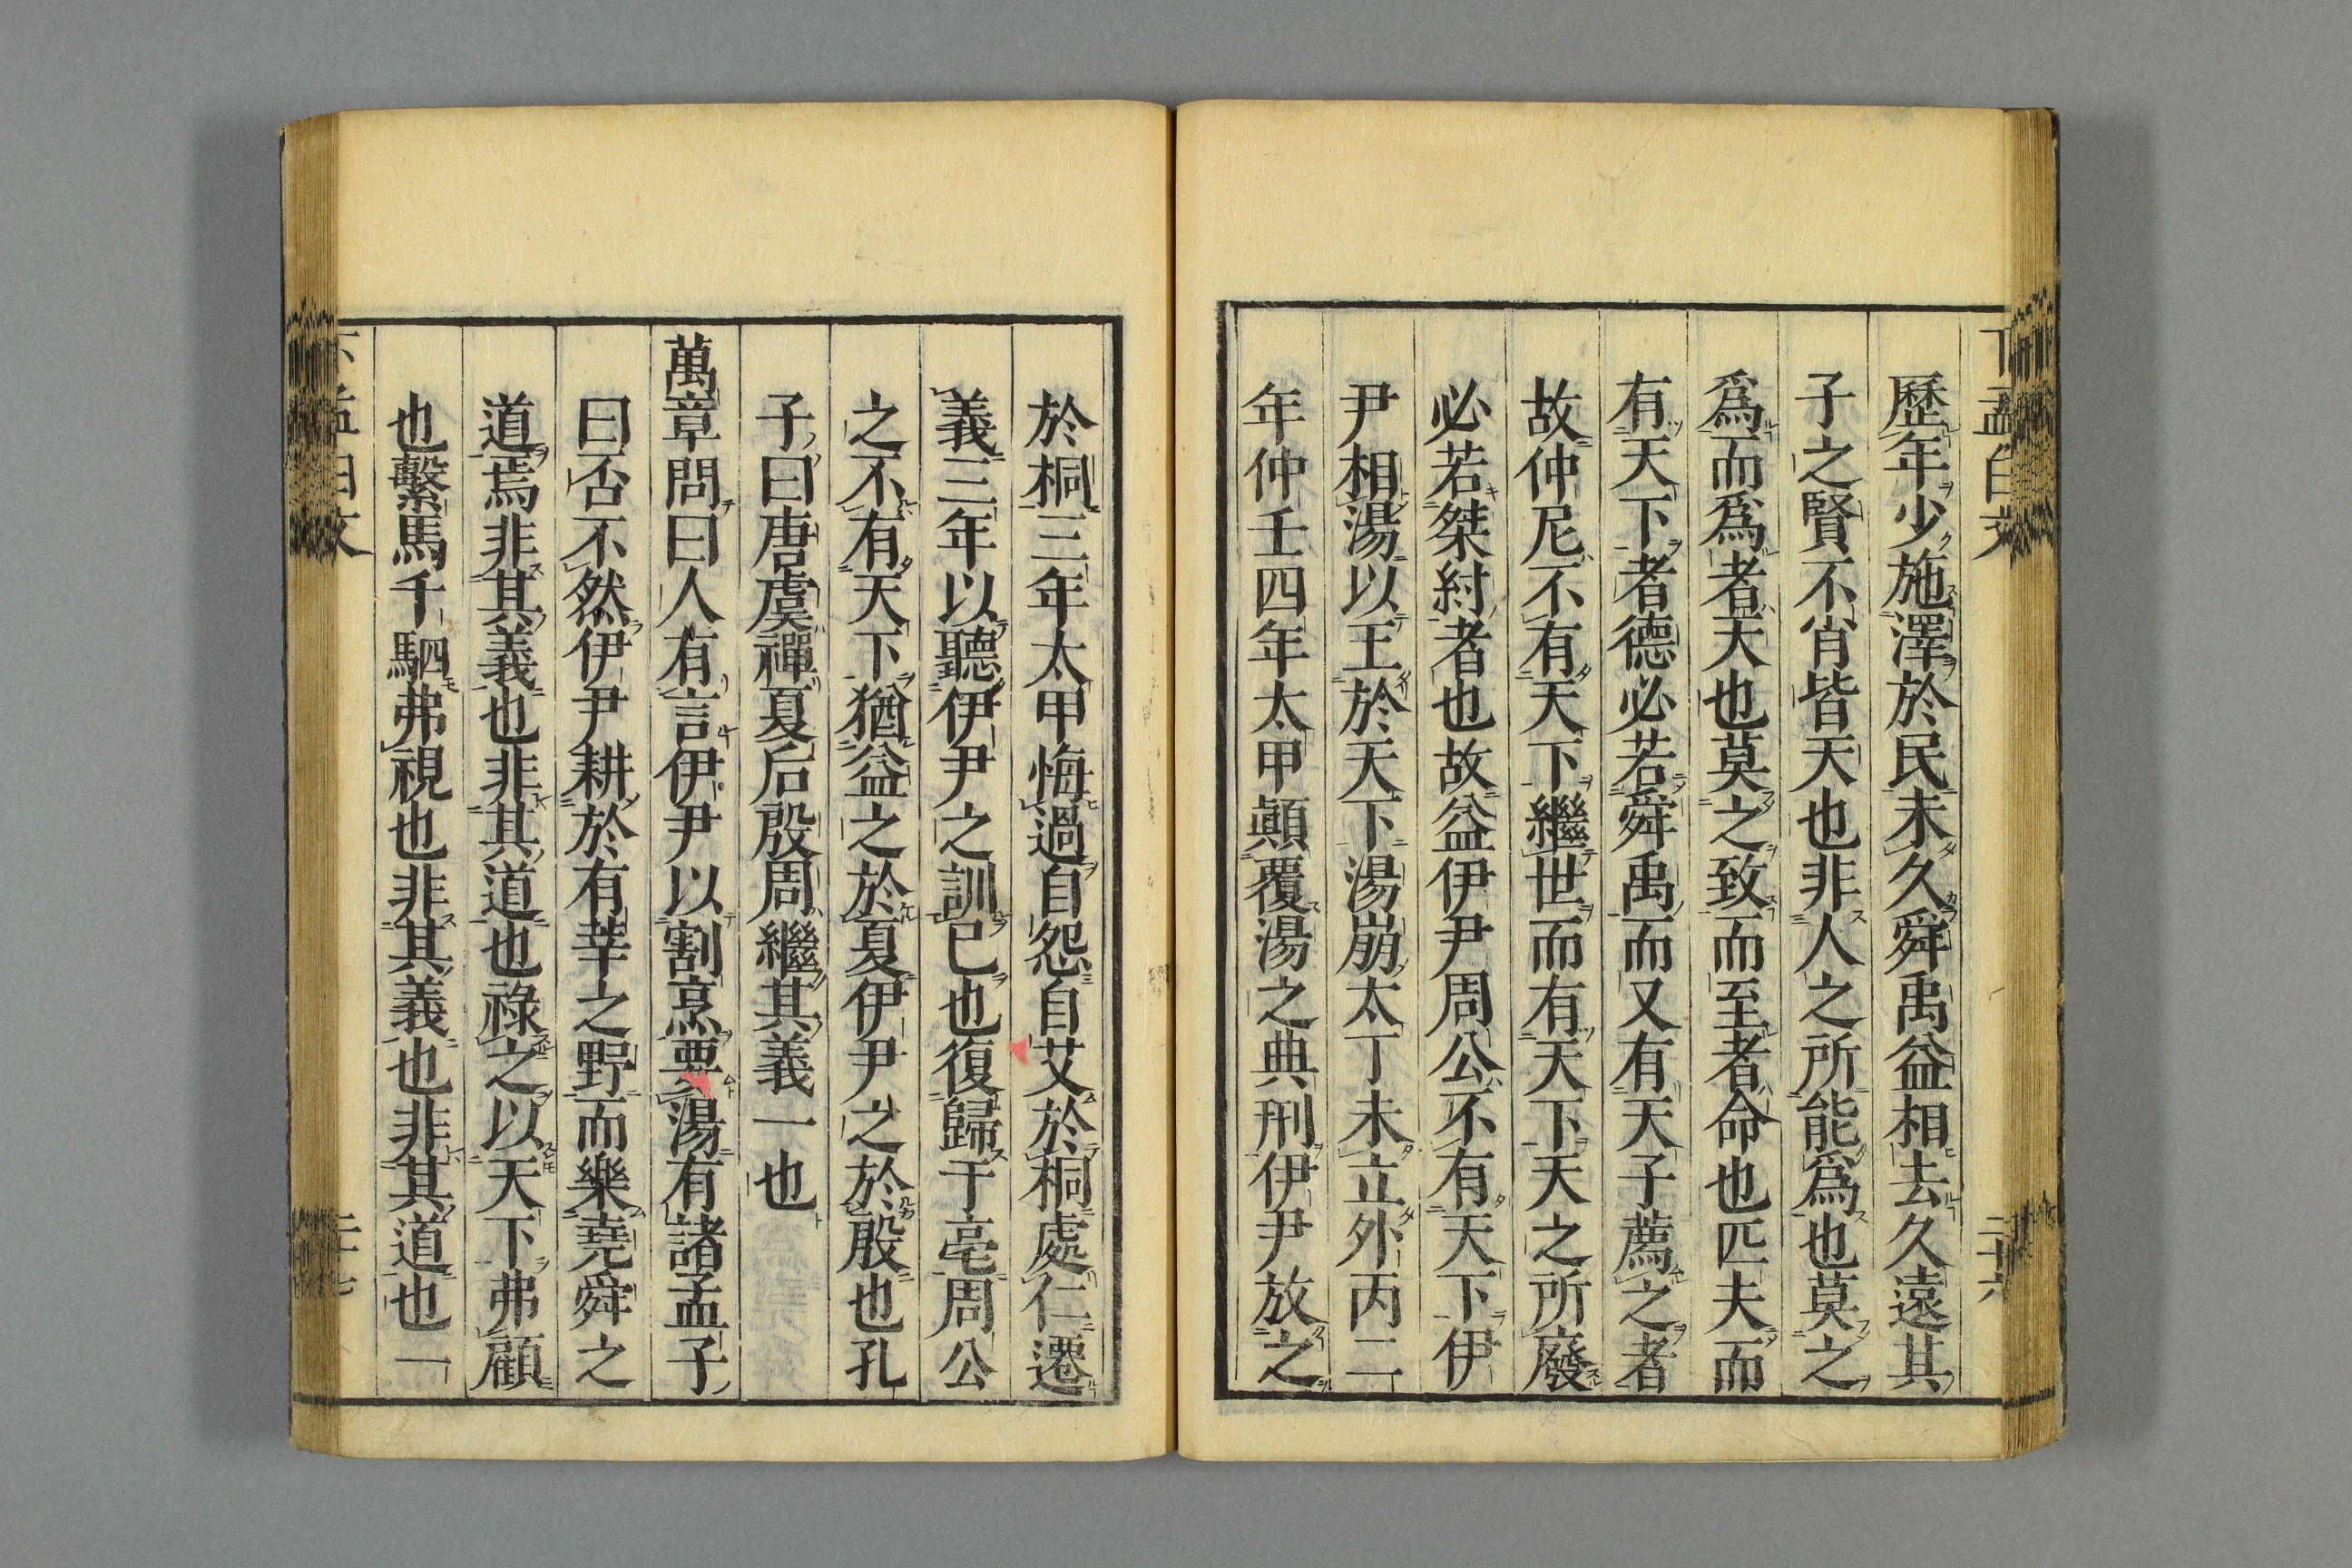 歷年少施澤於民未久舜禹益相去久遠其
子之賢不肖皆天也非人之所能爲也莫之
爲而爲者天也莫之致而至者命也匹夫而
有天下者德必若舜禹而又有天子薦之者
故仲尼不有天下繼世而有天下天之所廢
必若桀紂者也故益伊尹周公不有天下伊
尹相湯以王於天下湯崩太丁未立外丙二
年仲壬四年太甲顚覆湯之典刑伊尹放之
於桐三年太甲悔過自怨自艾於桐處仁遷
義三年以聽伊尹之訓已也復歸于亳周公
之不有天下猶益之於夏伊尹之於殷也孔
子曰唐虞禪夏后殷周繼其義一也
萬章問曰人有言伊尹以割烹要湯有諸孟子
曰否不然伊尹耕於有莘之野而樂堯舜之
道焉非其義也非其道也祿之以天下弗顧
也繫馬千駟弗視也非其義也非其道也一